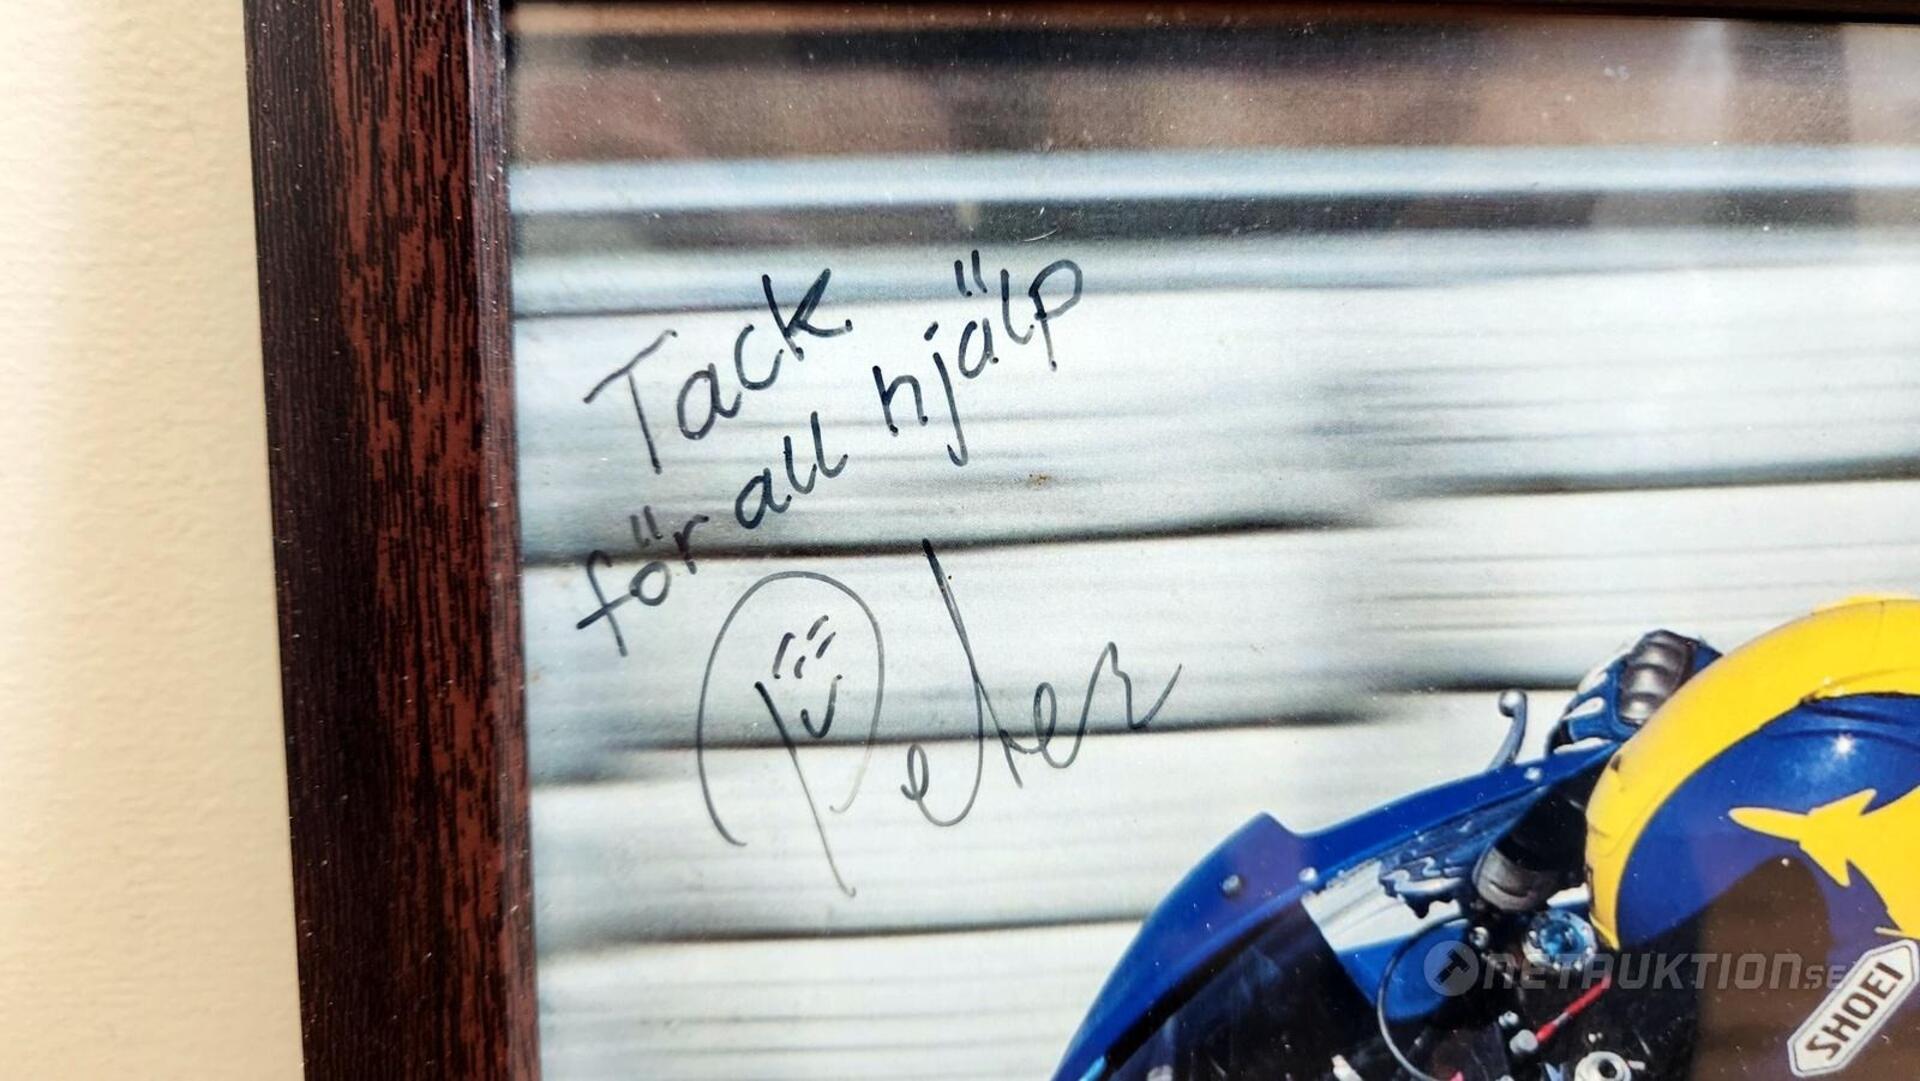 Tack
för all hjälp
Peter
NETAUKTION.SE
SHOEI